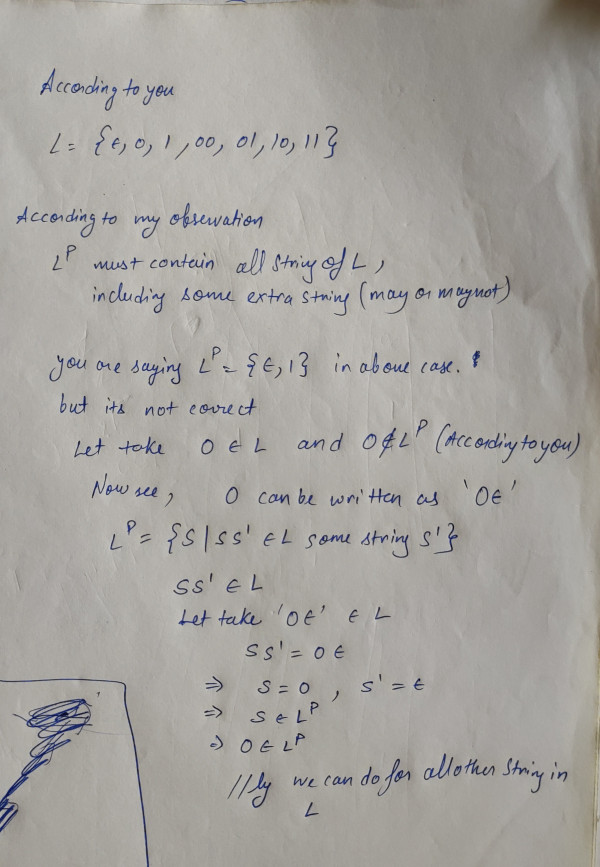 According to you
L = {ε, 0, 1, 00, 01, 10, 11}
According to my observation
L^P must contain all string of L,
including some extra string (may or may not)
you are saying L^P = {ε, 1} in above case.
but its not correct
Let take 0 ∈ L and 0 ∉ L^P (According to you)
Now see, 0 can be written as '0ε'
L^P = {S | SS' ∈ L some string S'}
SS' ∈ L
Let take '0ε' ∈ L
SS' = 0ε
⇒ S = 0, S' = ε
⇒ S ∈ L^P
⇒ 0 ∈ L^P
//ly we can do for all other string in
L